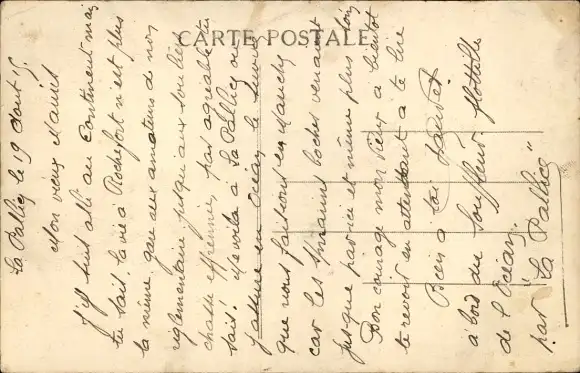 CARTE POSTALE
La Pallice le 19 Aout 15.
Mon vieux
J'y suis allé au Continent mais
tu sais. la vie à Rochefort n'est plus
la même que aux amateurs de nos
reglementaire jusqu'aux souliers
chasse effrénée, pas agréable tu
sais. Me voilà à La Pallice ou
Océan le
que nous faisons en Manche
car les sous marins boches venaient
jusque par ici et même plus loin
Bon courage mon vieux à bientôt
te revoir en attendant à te lire
Bien à toi
à bord du Souffleur flottille
de l'Océan.
par "La Pallice"